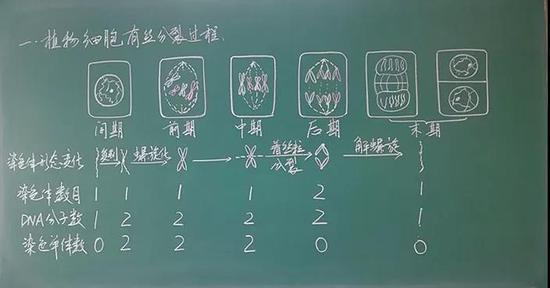 一.植物细胞有丝分裂过程.
间期 前期 中期 后期 末期
染色体形态变化 复制 螺旋化 着丝粒分裂 解螺旋
染色体数目 1 1 1 1 2 1
DNA分子数 1 2 2 2 2 1
染色单体数 0 2 2 2 0 0